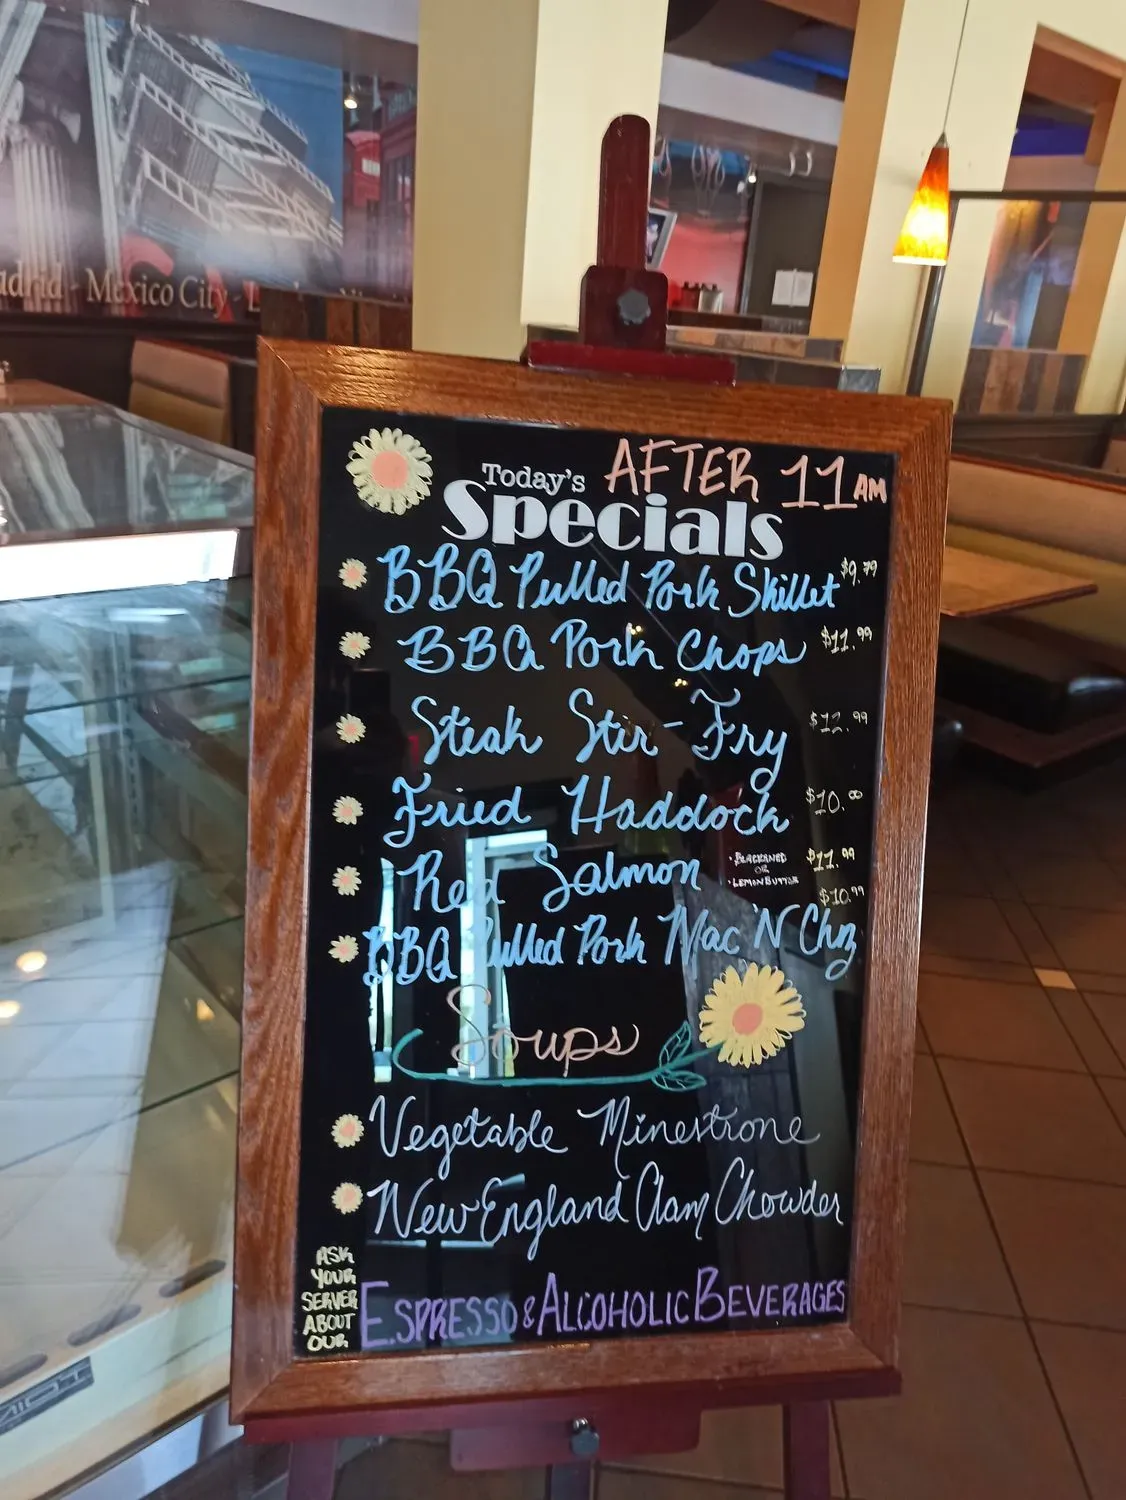 Madrid - Mexico City -
Today's AFTER 11 AM
Specials
BBQ Pulled Pork Skillet $9.79
BBQ Pork Chops $11.99
Steak Stir-Fry $12.99
Fried Haddock $10.00
Red Salmon • BLACKENED OR • LEMON BUTTER $11.99
$10.99
BBQ Pulled Pork Mac 'N Chz
Soups
Vegetable Minestrone
New England Clam Chowder
ASK
YOUR
SERVER
ABOUT
OUR
ESPRESSO & ALCOHOLIC BEVERAGES